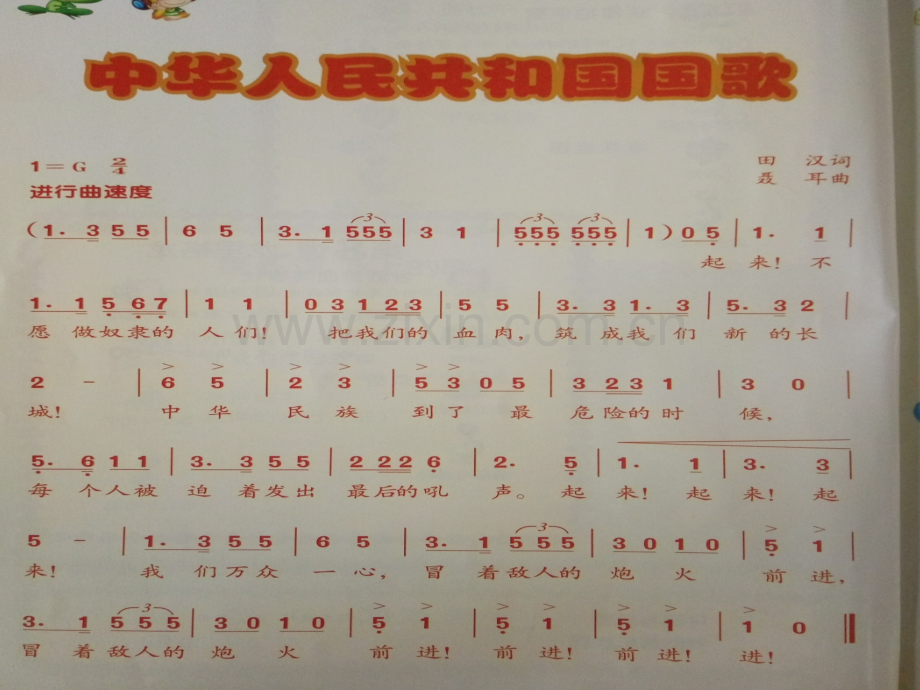 中华人民共和国国歌
1=G 2/4
田 汉词
进行曲速度
聂 耳曲
(1. 3 5 5 | 6 5 | 3. 1 555 | 3 1 | 555 555 | 1) 0 5 | 1. 1 |
起来! 不
1. 1 5 6 7 | 1 1 | 0 3 1 2 3 | 5 5 | 3. 3 1. 3 | 5. 3 2 |
愿 做奴隶的 人们! 把我们的 血肉, 筑 成我 们 新 的长
2 - | 6 5 | 2 3 | 5 3 0 5 | 3 2 3 1 | 3 0 |
城! 中 华 民 族 到了 最 危 险的时 候,
5. 6 1 1 | 3. 3 5 5 | 2 2 2 6 | 2. 5 | 1. 1 | 3. 3 |
每 个人被 迫 着发出 最后的吼 声。 起 来! 起 来! 起
5 - | 1. 3 5 5 | 6 5 | 3. 1 5 5 5 | 3 0 1 0 | 5 1 |
来! 我 们万众 一心, 冒 着敌人的 炮 火 前进,
3. 1 5 5 5 | 3 0 1 0 | 5 1 | 5 1 | 5 1 | 1 0 ‖
冒 着敌人的 炮 火 前 进! 前 进! 前 进! 进!
www.zixin.com.cn